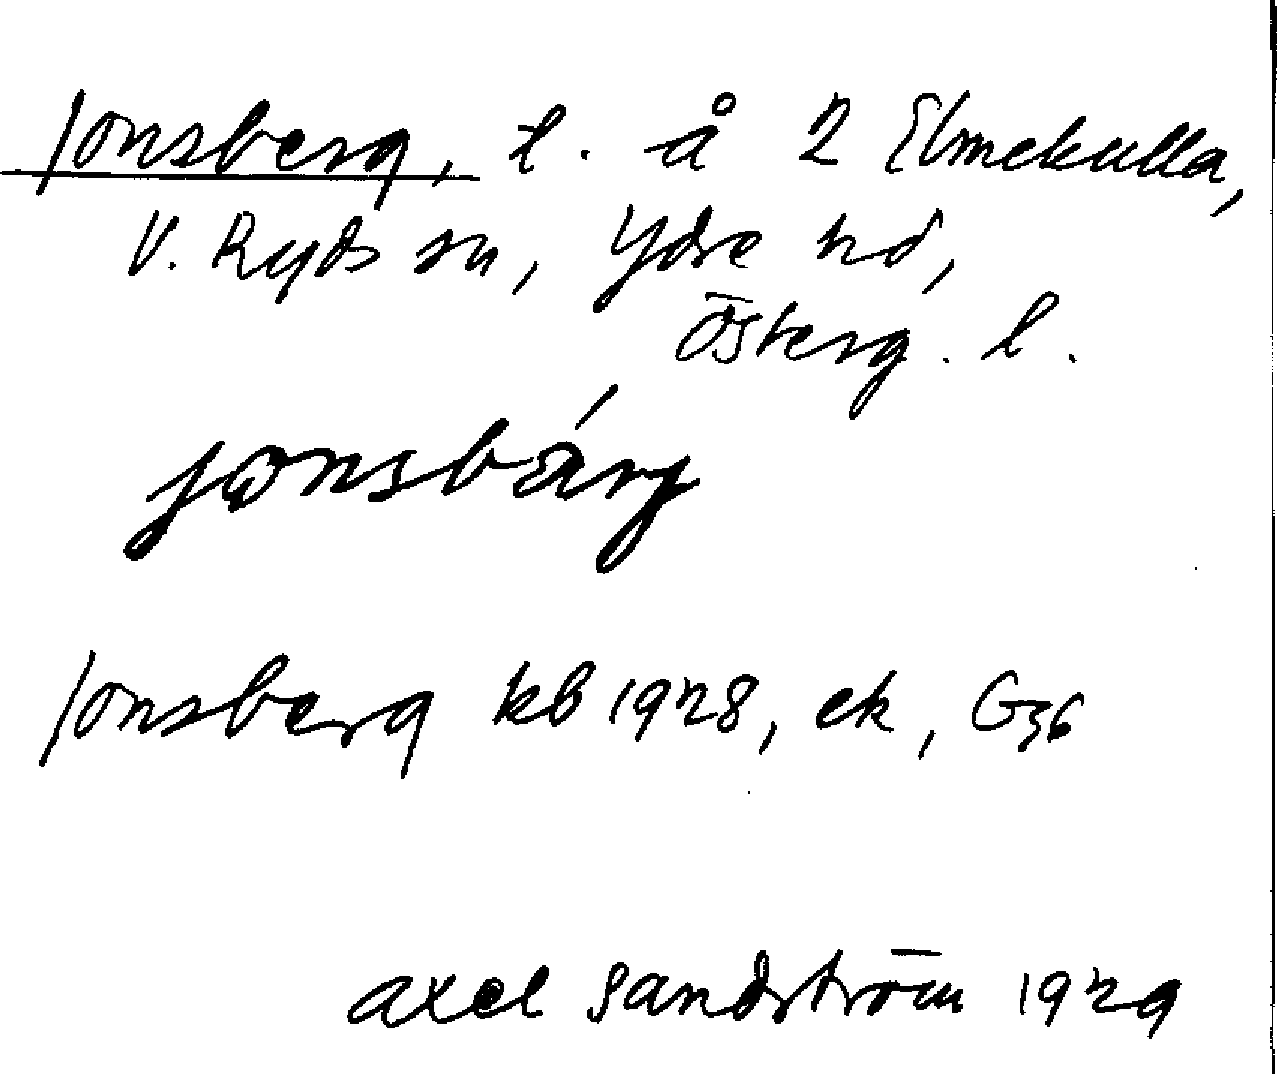 Jonsberg, t. å 2 Elmekulla,
V. Ryds sn, Ydre hd,
Österg. l.
jonsbärj
Jonsberg kb 1928, ek, G36
Axel Sandström 1929